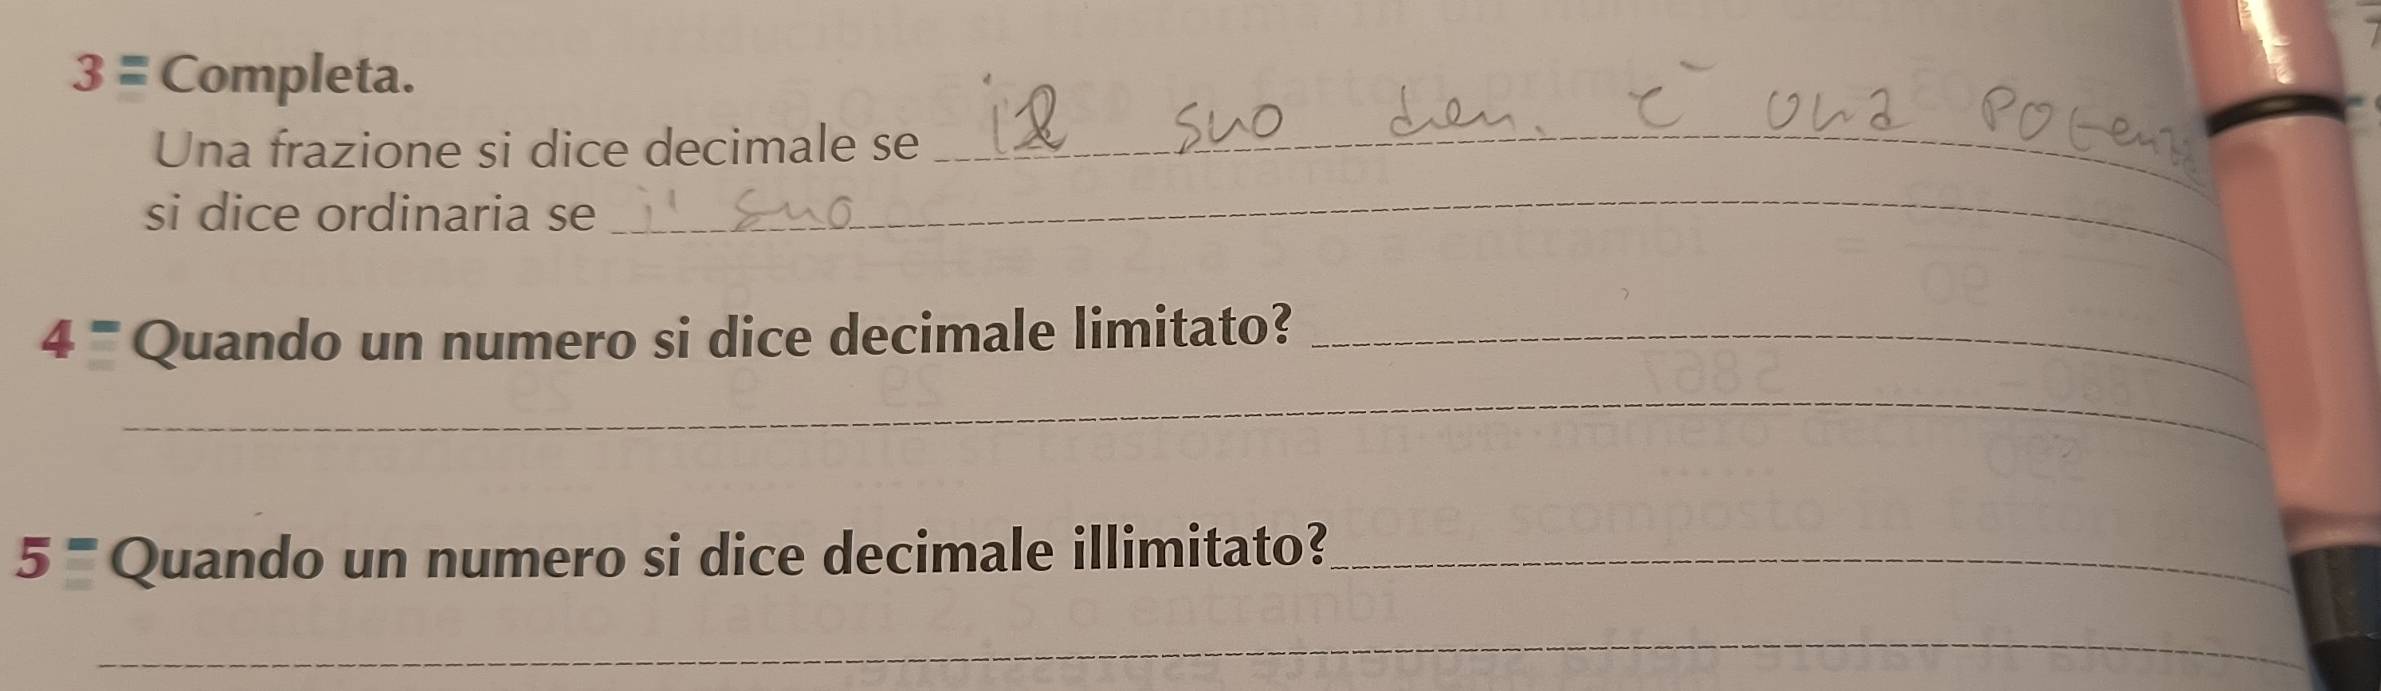 3 Completa.
Una frazione si dice decimale se il suo den. è una potenza
si dice ordinaria se il suo
4 Quando un numero si dice decimale limitato?
5 Quando un numero si dice decimale illimitato?